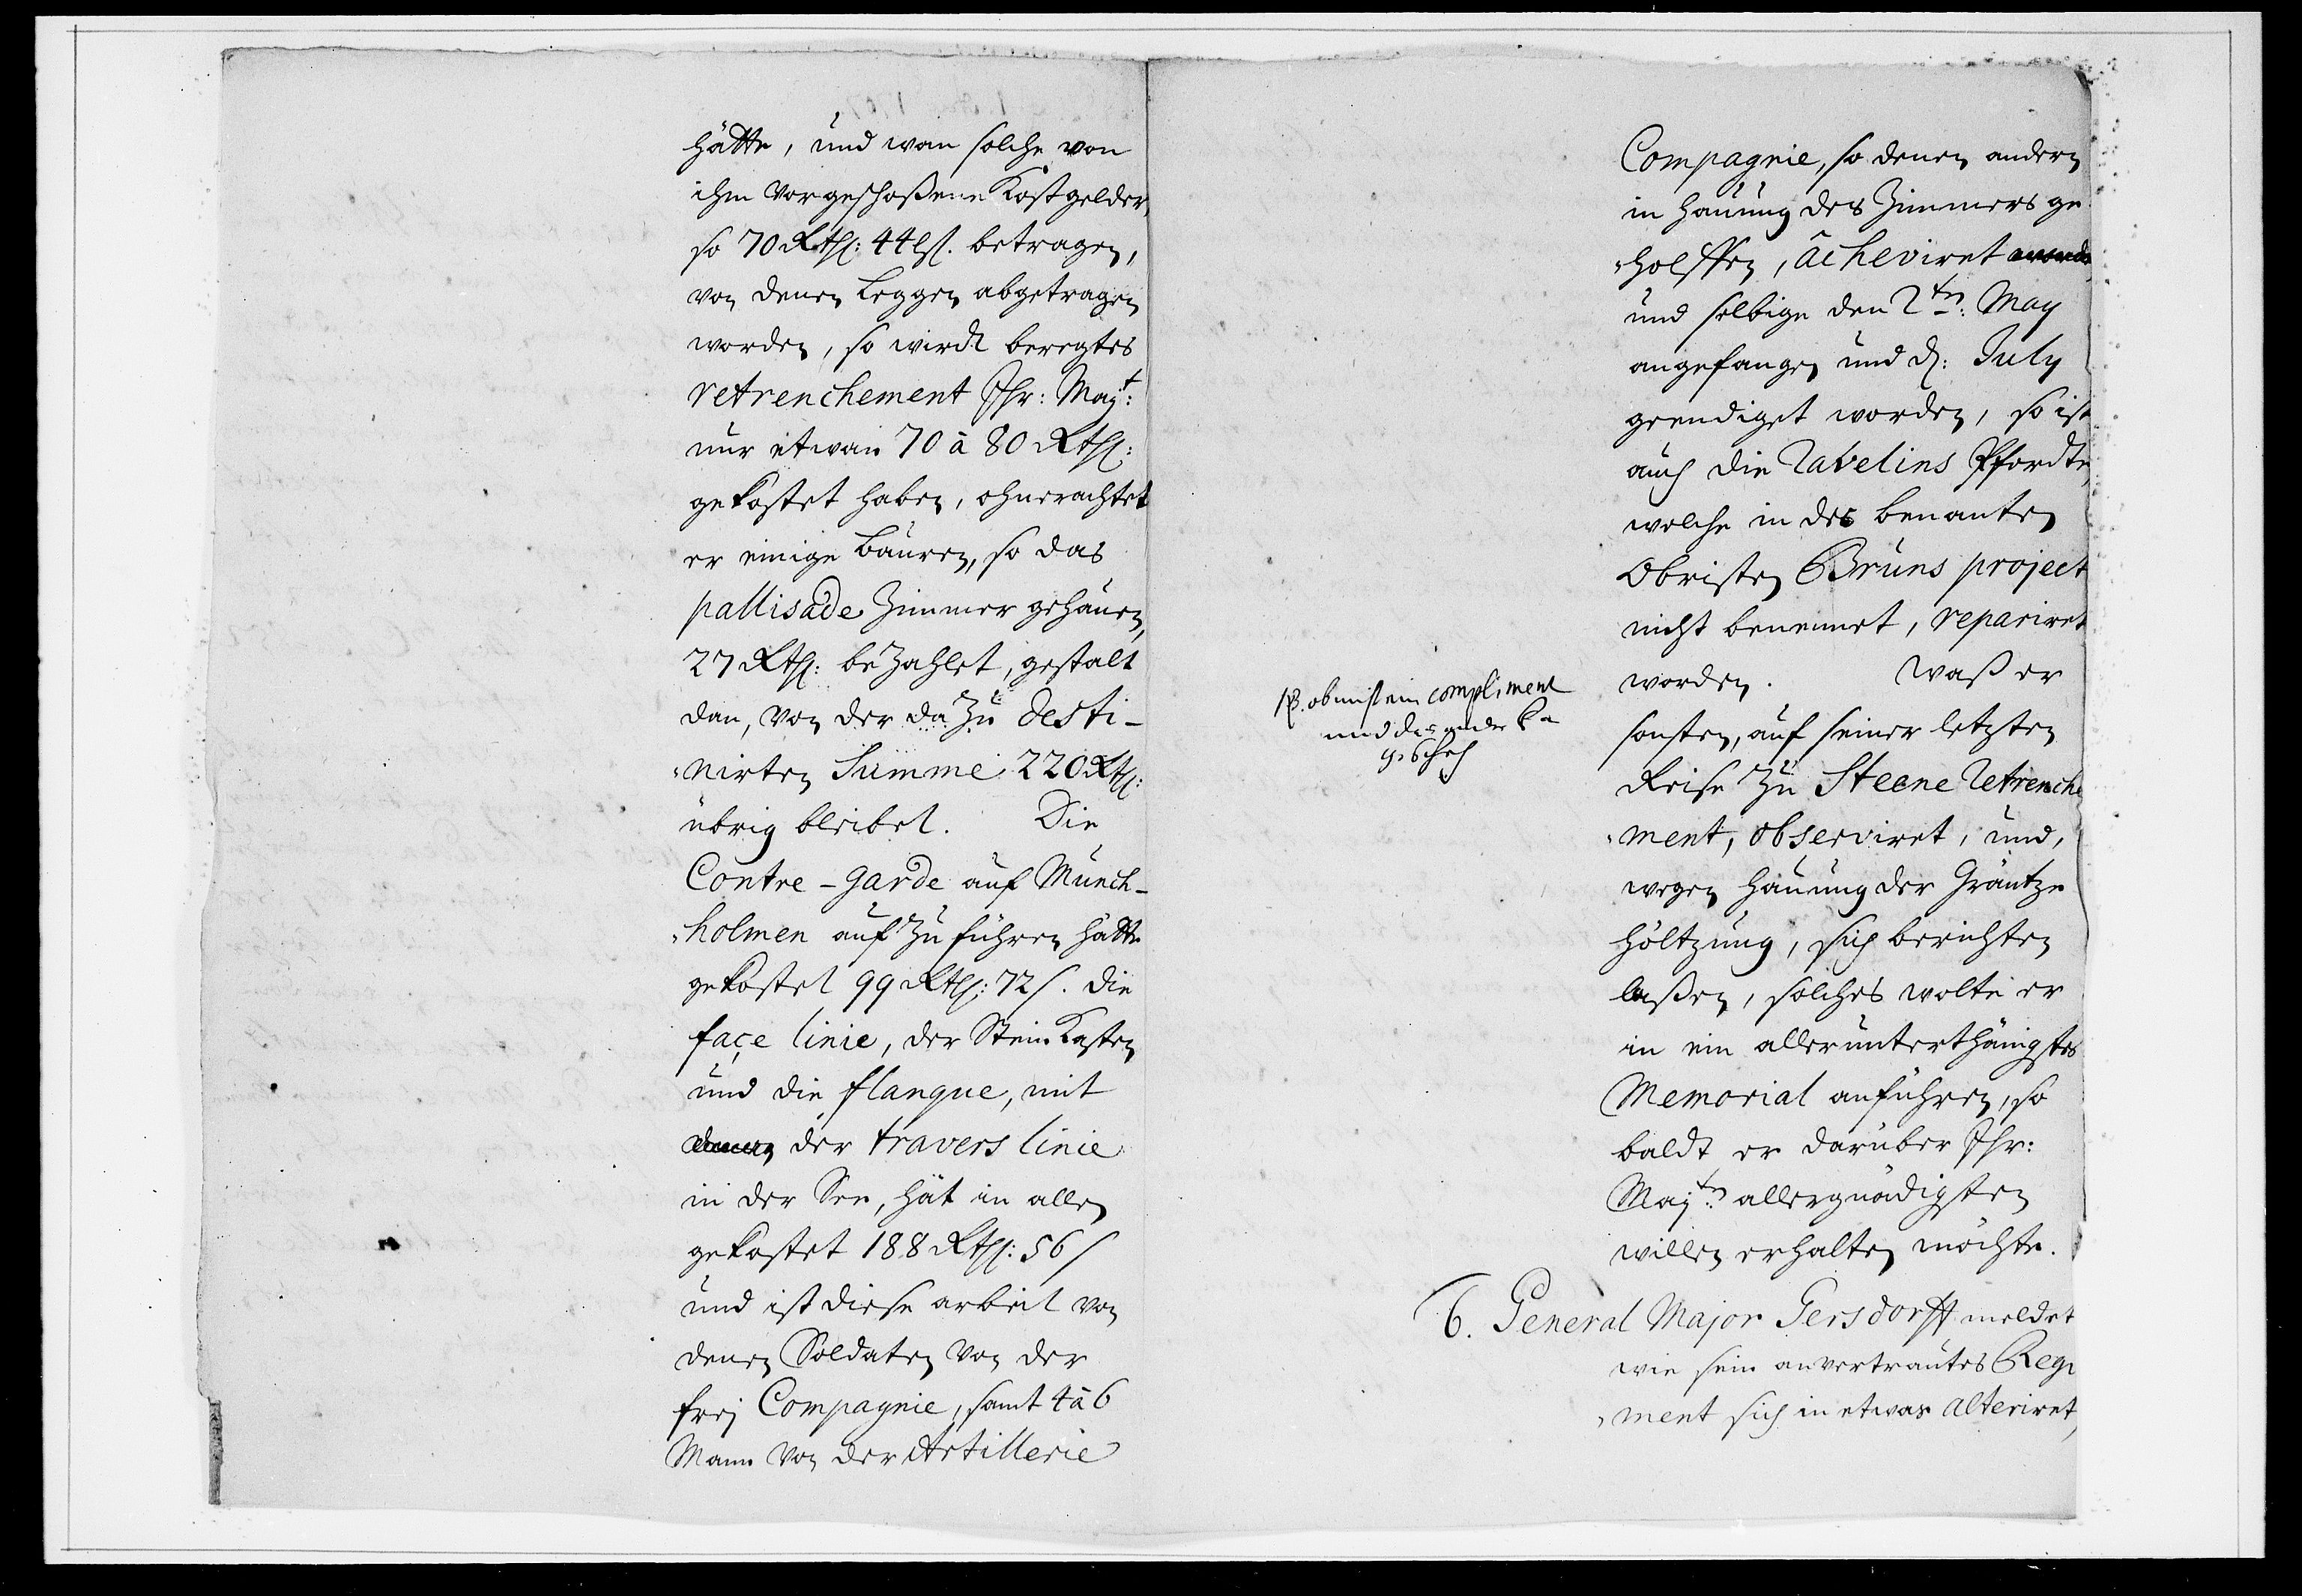 hätte, und wan solche von
ihm vorgeschoßene Kostgelder,
so 70 Rthl: 44 ls. betragen,
von denen Leggen abgetragen
worden, so wirdt beregtes
retrenchement Ihr: Mayt:
nur etwan 70 à 80 Rthl:
gekostet haben, ohnerachtet
er einige bauren, so das
pallisade Zimmer gehauen,
27 Rthl: bezahlet, gestalt
dan, von der da zu desti-
nirten Summe 220 Rthl:
übrig bleibet. Die
Contre-garde auf Munch-
holmen auf zu führen hatte
gekostet 99 Rthl: 72 s. die
façe linie, der Stein Kasten
und die flanque, mit
der travers linie
in der See, hat in allen
gekostet 188 Rthl: 56 s
und ist diese arbeit von
denen Soldaten von der
frej Compagnie, samt 4 à 6
Mann von der Artillerie
Compagnie, so denen andern
in hauung des Zimmers ge-
holffen, acheviret
und selbige den 2tn: May
angefangen und d: July
geendiget worden, so ist
auch die Ravelins Pfordte,
welche in des benanten
Obristen Bruns project
nicht benennet, repariret
worden. Waß er
sonsten, auf seiner letzten
Reise zu Steene Retrenche
ment, observiret, und,
wegen hauung der Gräntze
höltzung, sich berichten
laßen, solches wolte er
in ein allerunterthänigstes
Memorial anführen, so
baldt er darüber Ihr:
Maytn: allergnädigsten
willen erhalten möchte.
NB. ob nicht ein compliment
und das ander
6. General Major Gersdorff meldet
wie sein anvertrautes Regi
ment sich in etwas alteriret,